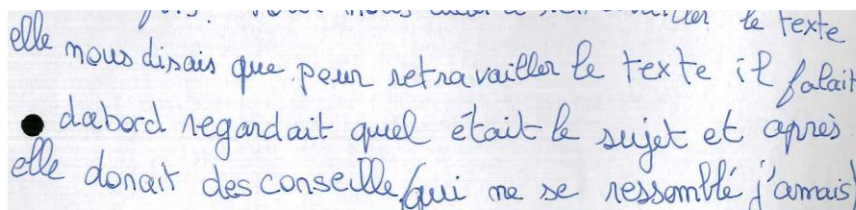 le texte
elle nous disais que peur retravailler le texte il falait
dabord regardait quel était le sujet et après
elle donait des conseille (qui ne se ressemblé j'amais)